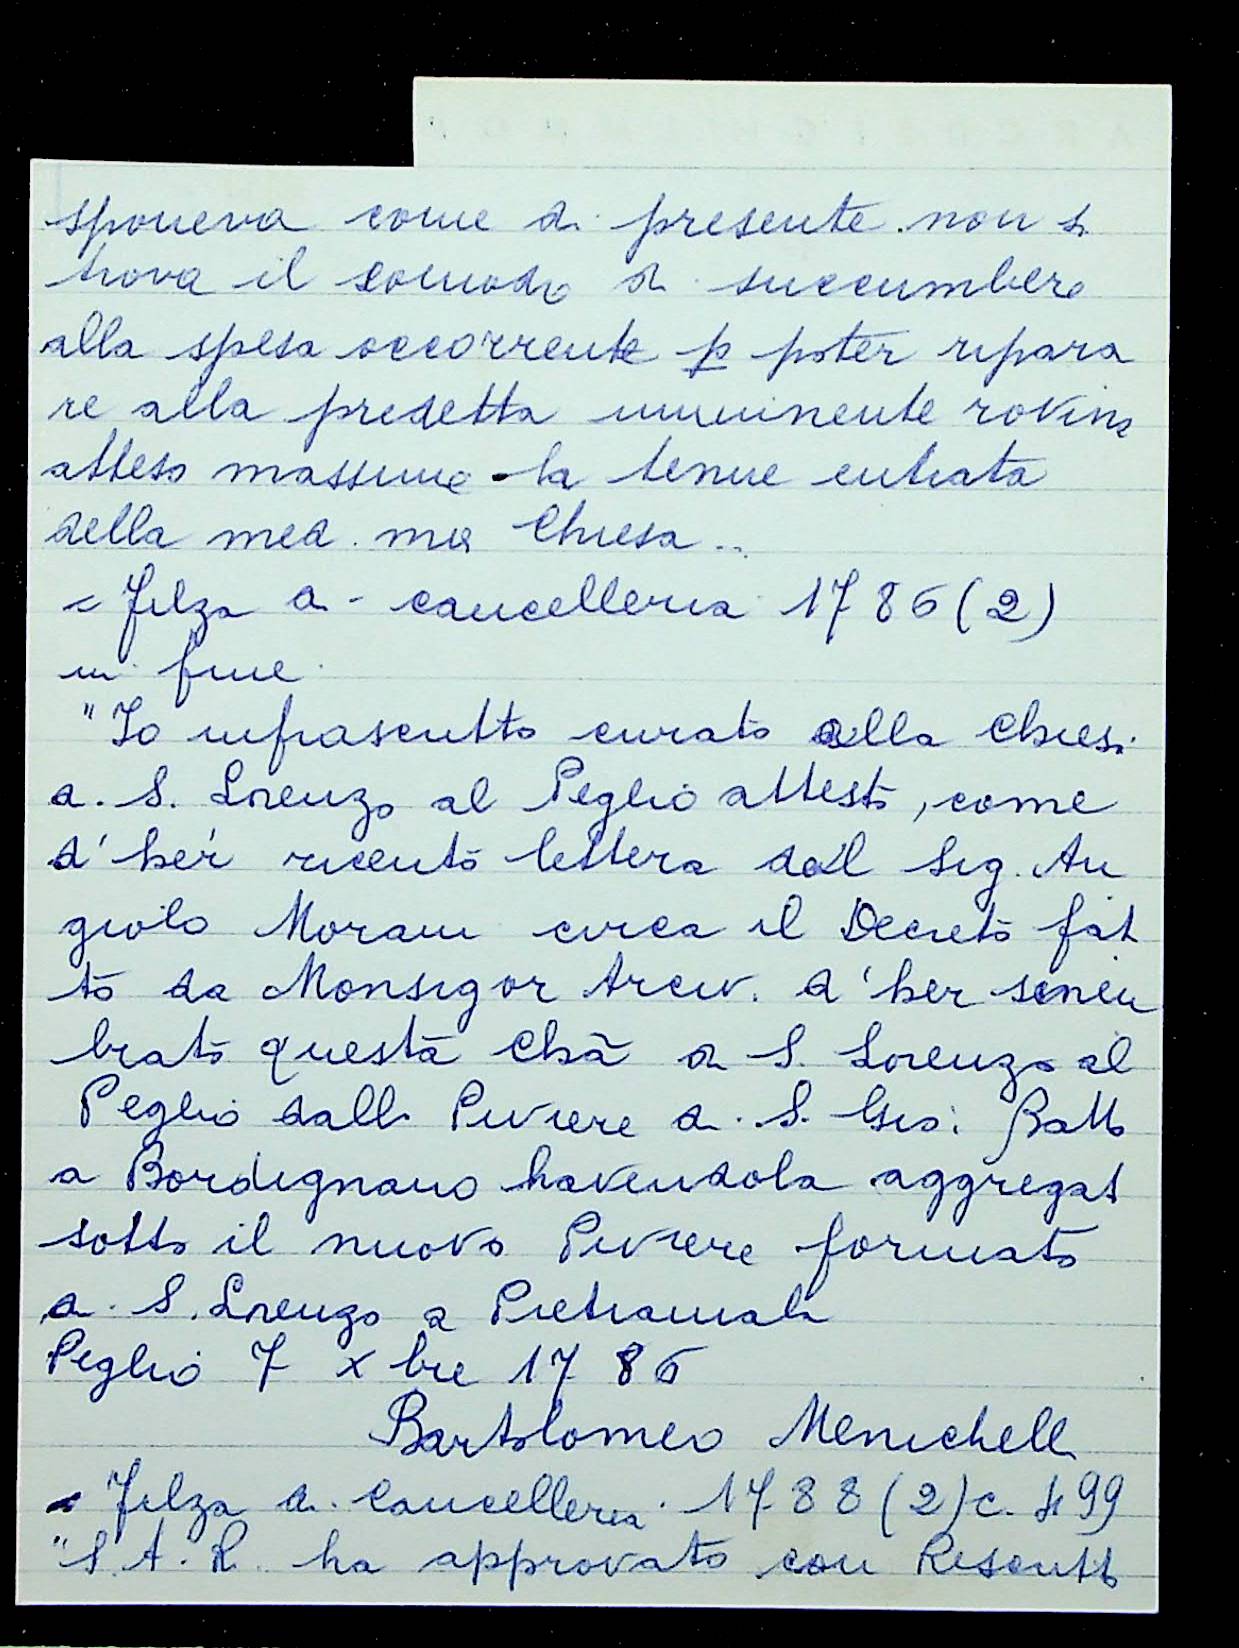 sponeva come di presente non si
trova il comodo di succumbere
alla spesa occorrente p poter ripara
re alla predetta imminente rovina
atteso massime la tenue entrata
della med. ma Chiesa..
= Filza di - cancelleria 1786 (2)
in fine
"Io infrascritto curato della Chiesa
di S. Lorenzo al Peglio attesto, come
d'her ricevuto lettera dal Sig. An
giolo Morani circa il Decreto fat
to da Monsigor Arciv. d'her smem
brato questa Chã di S. Lorenzo al
Peglio dalla Piviere di S. Gio: Batt
a Bordignano havendola aggregat
sotto il nuovo Piviere formato
di S. Lorenzo a Pietramala
Peglio 7 xbre 1786
Bartolomeo Menichelli
= Filza di Cancelleria 1788 (2) c. 499
"S. A. R. ha approvato con Rescritto